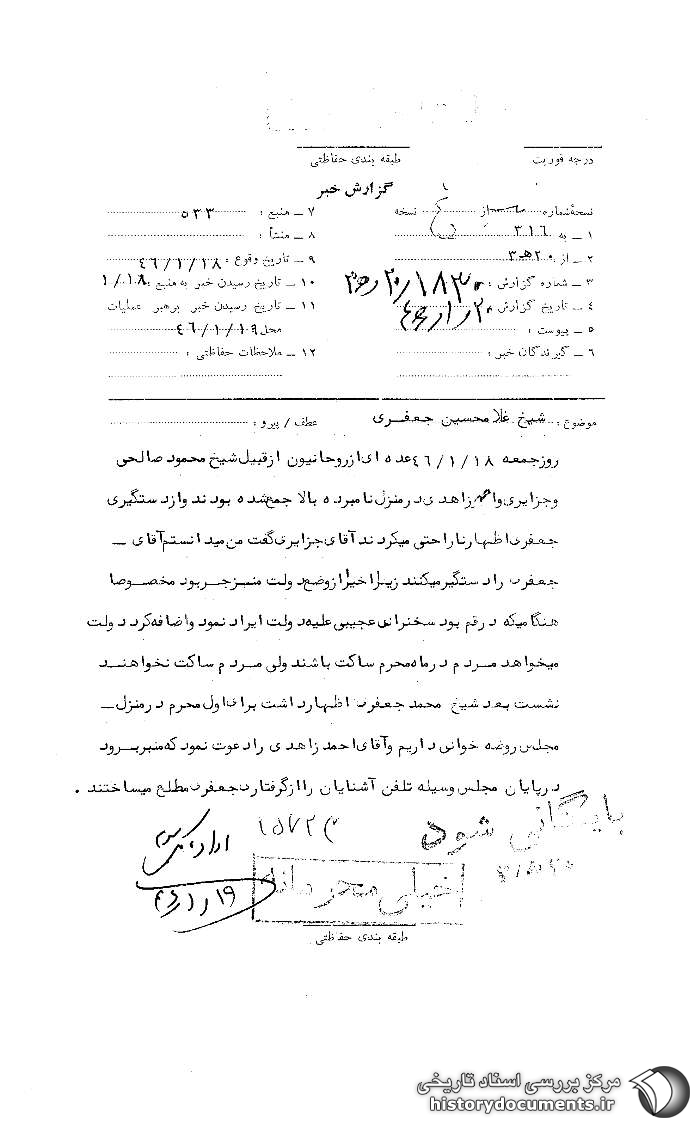 درجه فوریت
طبقه بندی حفاظتی
گزارش خبر
نسخهٔ شماره از نسخه
۱ ـ به ۳۱٦
۲ ـ از ۲۰ه۳
۳ ـ شماره گزارش :
٤ ـ تاریخ گزارش :
۵ ـ پیوست :
٦ ـ گیرندگان خبر :
۷ ـ منبع : ۵۳۳
۸ ـ منشأ :
۹ ـ تاریخ وقوع : ٤٦/۱/۱۸
۱۰ ـ تاریخ رسیدن خبر به منبع : ۱/۱۸
۱۱ ـ تاریخ رسیدن خبر برهبر عملیات
محل ٤٦/۱/۱۹
۱۲ ـ ملاحظات حفاظتی :
موضوع : شیخ غلامحسین جعفری
عطف / پیرو :
روزجمعه ٤٦/۱/۱۸ عده ای ازروحانیون ازقبیل شیخ محمود صالحی
وجزایری واحمدزاهدی درمنزل نامبرده بالا جمع شده بودند وازدستگیری
جعفری اظهارناراحتی میکردند آقای جزایری گفت من میدانستم آقای ـ
جعفری رادستگیرمیکنند زیرا اخیرا ازوضع دولت منزجربود مخصوصا
هنگامیکه درقم بود سخنرانی عجیبی علیه دولت ایراد نمود واضافه کرد دولت
میخواهد مردم درماه محرم ساکت باشند ولی مردم ساکت نخواهند
نشست بعد شیخ محمد جعفری اظهارداشت برای اول محرم درمنزل ـ
مجلس روضه خوانی داریم وآقای احمد زاهدی رادعوت نمود که منبربرود
درپایان مجلس وسیله تلفن آشنایان راازگرفتاری جعفری مطلع میساختند .
بایگانی شود
۱۵۷۲۳
خیلی محرمانه
طبقه بندی حفاظتی
مرکز بررسی اسناد تاریخی
historydocuments.ir